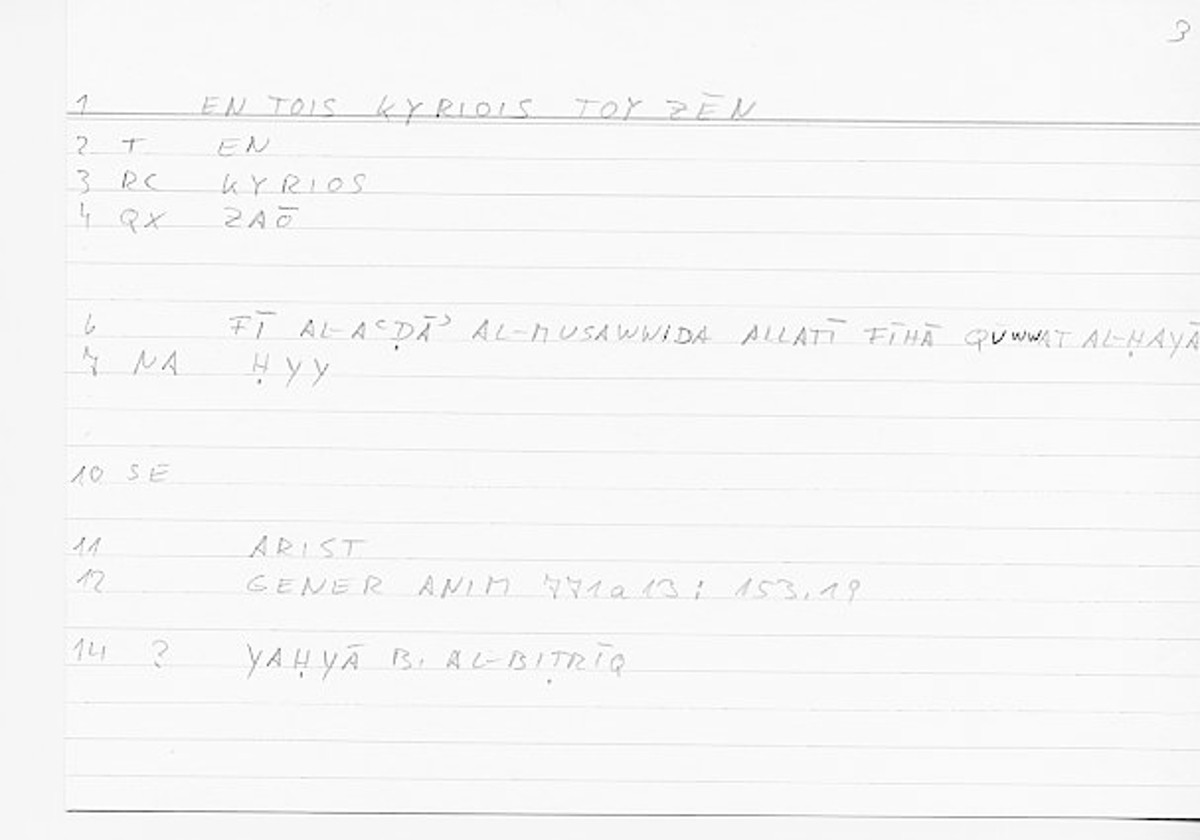 3
1 EN TOIS KYRIOIS TOY ZĒN
2 T EN
3 RC KYRIOS
4 QX ZAŌ
6 FĪ AL-AʿḌĀʾ AL-MUSAWWIDA ALLATĪ FĪHĀ QUWWAT AL-ḤAYĀ
7 NA ḤYY
10 SE
11 ARIST
12 GENER ANIM 771a13; 153.19
14 ? YAḤYĀ B. AL-BIṬRĪQ